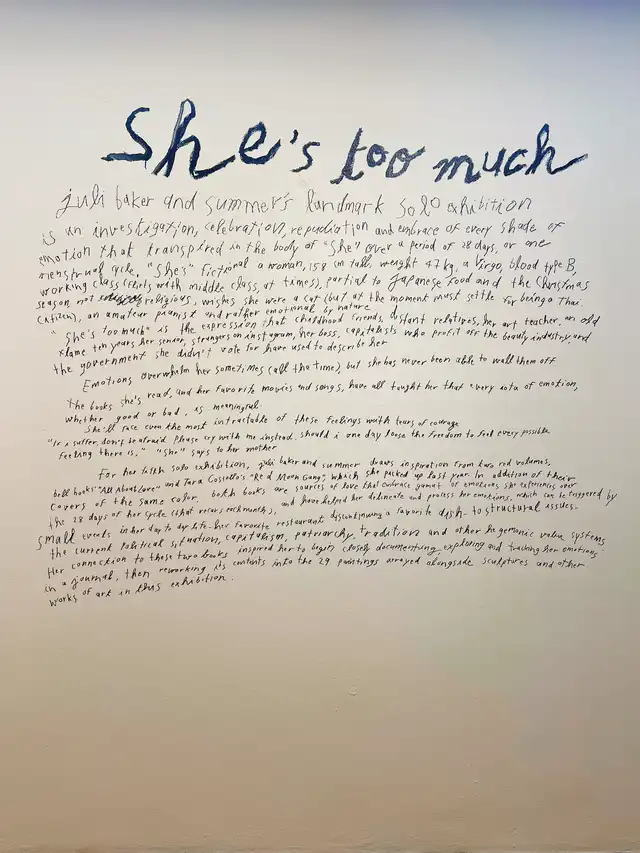 She's too much
juli baker and summer's landmark solo exhibition
is an investigation, celebration, repudiation and embrace of every shade of
emotion that transpired in the body of "she" over a period of 28 days, or one
menstrual cycle, "She's" fictional a woman, 158 cm tall, weight 47 kg, a Virgo, blood type B,
working class (flirts with middle class, at times), partial to Japanese food and the Christmas
season, not religious, wishes she were a cat (but at the moment must settle for being a Thai
citizen), an amateur pianist and rather emotional by nature
"She's too much" is the expression that childhood friends, distant relatives, her art teacher, an old
flame ten years her senior, strangers on instagram, her boss, capitalists who profit off the beauty industry, and
the government she didn't vote for have used to describe her
Emotions overwhelm her sometimes (all the time) but she has never been able to wall them off
The books she's read, and her favorite movies and songs, have all tought her that every iota of emotion,
whether good or bad, is meaningful.
She'll face even the most intractable of these feelings with tears of courage
"If I suffer, don't be afraid. Please cry with me instead, should i one day loose the freedom to feel every possible
feeling there is," "she" says to her mother
For her solo exhibition, juli baker and summer draws inspiration from two red volumes,
bell hooks' "All About Love" and Tara Costello's "Red Moon Gang", which she picked up last year. In addition of their
covers of the same color, both books are sources of love that embrace gamut of emotions she experiences over
the 28 days of her cycle (that recurs each month), and have helped her delineate and process her emotions, which can be triggered by
small events in her day to day life- her favorite restaurant discontinuing a favorite dish- to structural issues-
the current political situation, capitalism, patriarchy, tradition and other hegemonic value systems
Her connection to these two books inspired her to begin closely documenting, exploring and tracking her emotions
in a journal, then reworking its contents into the 29 paintings arrayed alongside sculptures and other
works of art in this exhibition.